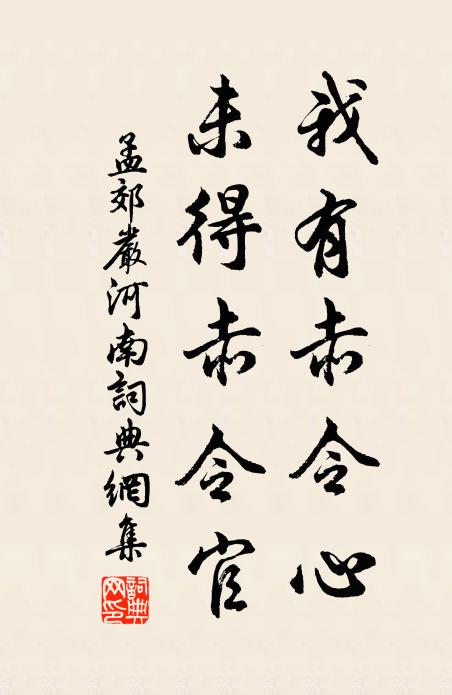 我有赤令心
未得赤令官
孟郊嚴河南詞典網集
詞典网印